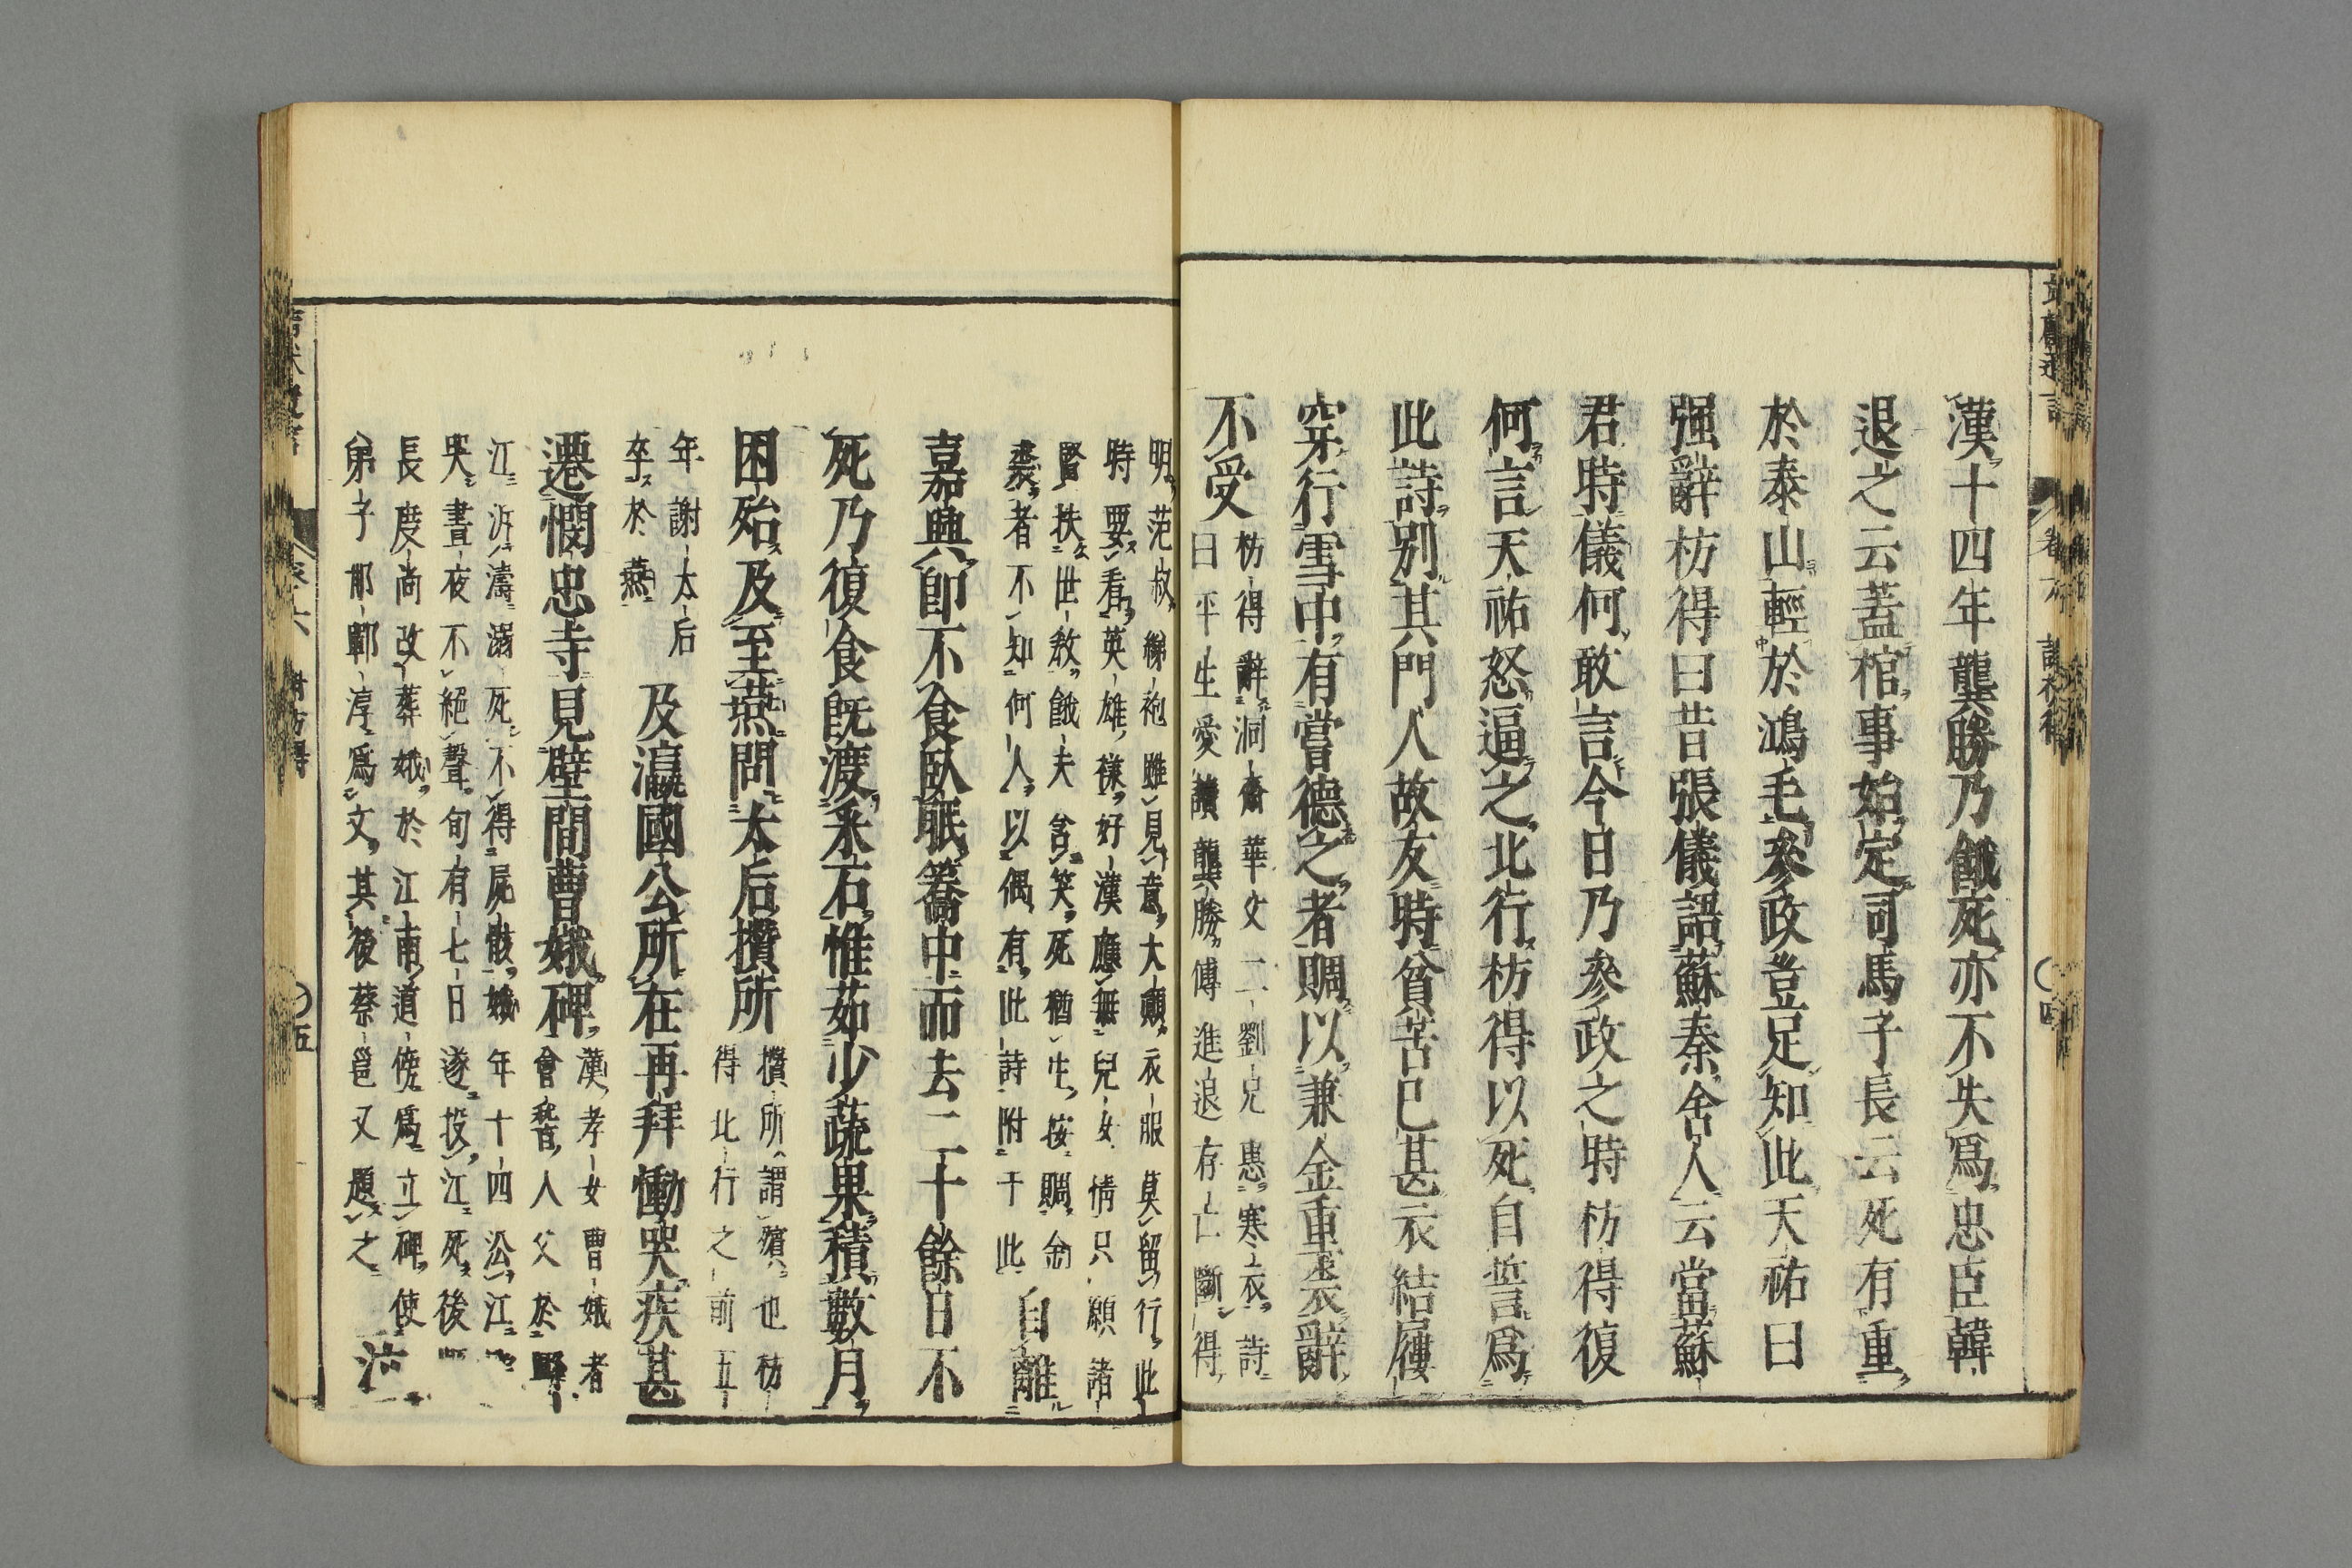 漢十四年龔勝乃餓死亦不失爲忠臣韓
退之云蓋棺事始定司馬子長云死有重
於泰山輕於鴻毛參政豈足知此天祐曰
强辭枋得曰昔張儀語蘇秦舍人云當蘇
君時儀何敢言今日乃參政之時枋得復
何言天祐怒逼之北行枋得以死自誓爲
此詩別其門人故友時貧苦已甚衣結屨
穿行雪中有嘗德之者賙以兼金重裘辭
不受
枋得辭洞齋華文二劉兄惠寒衣詩
曰平生愛讀龔勝傳進退存亡斷得
明范叔綈袍雖見意大顛衣服莫留行此
時要看英雄樣好漢應無兒女情只願諸
賢扶世敎餓夫含笑死猶生按賙金
裘者不知何人以偶有此詩附于此
自離
嘉興卽不食臥眠籌中而去二十餘日不
死乃復食旣渡采石惟茹少蔬果積數月
困殆及至燕問太后攢所
攢所謂殯也枋
得北行之前五
年謝太后
卒於燕
及瀛國公所在再拜慟哭疾甚
遷憫忠寺見壁間曹娥碑
漢孝女曹娥者
會稽人父於縣
江泝濤溺死不得屍骸娥年十四沿江
哭晝夜不絕聲旬有七日遂投江死後
長度尚改葬娥於江南道傍爲立碑使
弟子邯鄲淳爲文其後蔡邕又題之
泣
卷六
四
五